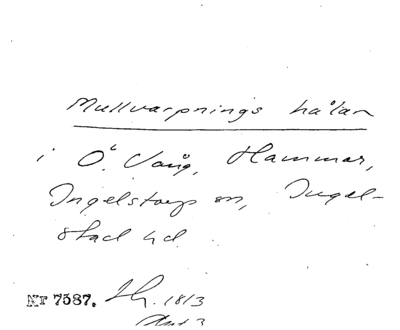 Mullvarpnings hålan
i Ö. Vång, Hammar,
Ingelstorp sn, Ingel-
stad hd
NT 7587. 1813